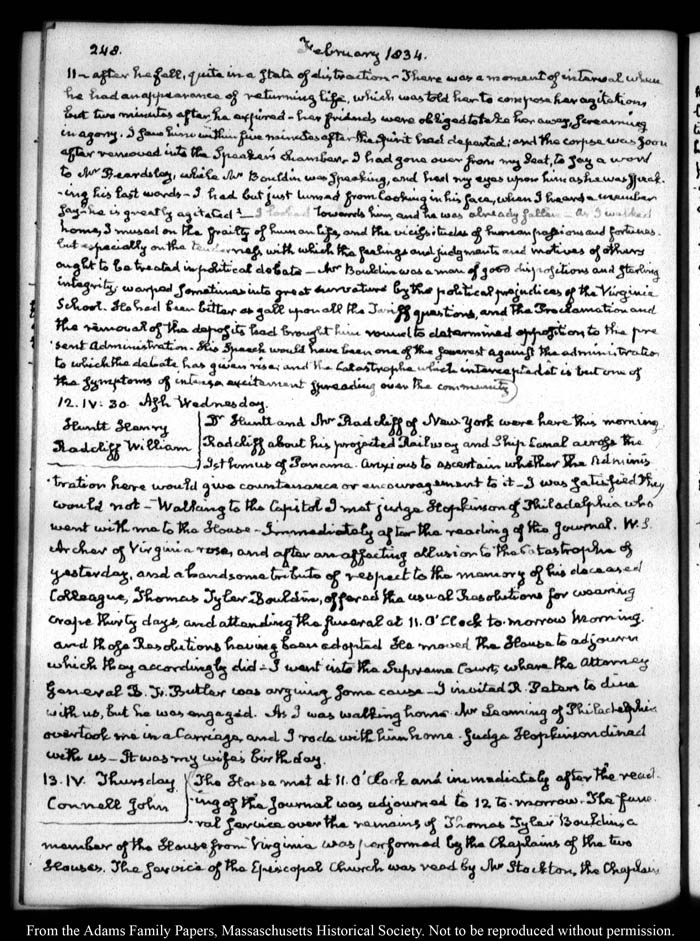 248. February 1834.
11 - after he fell, quite in a state of distraction - There was a moment of interval when
he had an appearance of returning life, which was told her to compose her agitations
but two minutes after, he expired - her friends were obliged to take her away, screaming
in agony. I saw him within five minutes after the Spirit had departed; and the corpse was soon
after removed into the Speaker's chamber. I had gone over from my seat, to say a word
to Mr Beardsley, while Mr Bouldin was speaking, and had my eyes upon him as he was speak-
-ing his last words - I had but just turned from looking in his face, when I heard a member
say - he is greatly agitated! - I looked towards him, and he was already fallen - As I walked
home, I mused on the frailty of human life, and the vicissitudes of human passions and fortunes.
but especially on the tenderness, with which the feelings and judgments and motives of others
ought to be treated in political debate - Mr Bouldin was a man of good dispositions and sterling
integrity, warped sometimes into great curvature by the political prejudices of the Virginia
School. He had been bitter as gall upon all the Tariff questions, and the Proclamation and
the removal of the deposits had brought him round to determined opposition to the pre
sent Administration. His Speech would have been one of the severest against the administration
to which the debate has given rise; and the Catastrophe which intercepted it is but one of
the symptoms of intense excitement spreading over the community
12. IV: 30. Ash Wednesday.
Huntt Henry
Radcliff William
Dr Huntt and Mr Radcliff of New York were here this morning
Radcliff about his projected Railway and Ship Canal across the
Isthmus of Panama. Anxious to ascertain whether the Adminis
tration here would give countenance or encouragement to it - I was satisfied they
would not - Walking to the Capitol I met judge Hopkinson of Philadelphia who
went with me to the House - Immediately after the reading of the Journal. W. S.
Archer of Virginia rose, and after an affecting allusion to the Catastrophe of
yesterday, and a handsome tribute of respect to the memory of his deceased
Colleague, Thomas Tyler Bouldin, offered the usual Resolutions for wearing
crape thirty days, and attending the funeral at 11. O'Clock to-morrow Morning.
and those Resolutions having been adopted He moved the House to adjourn
which they accordingly did - I went into the Supreme Court, where the Attorney
General B. F. Butler was arguing some cause - I invited R. Peters to dine
with us, but he was engaged. As I was walking home Mr Leaming of Philadelphia
overtook me in a Carriage, and I rode with him home. Judge Hopkinson dined
with us - It was my wife's birth day.
13. IV. Thursday
Connell John
The House met at 11. O'Clock and immediately after the read-
-ing of the Journal was adjourned to 12 to-morrow. The fune
ral service over the remains of Thomas Tyler Bouldin a
member of the House from Virginia was performed by the Chaplains of the two
Houses. The Service of the Episcopal Church was read by Mr Stockton, the Chaplain
From the Adams Family Papers, Massachusetts Historical Society. Not to be reproduced without permission.